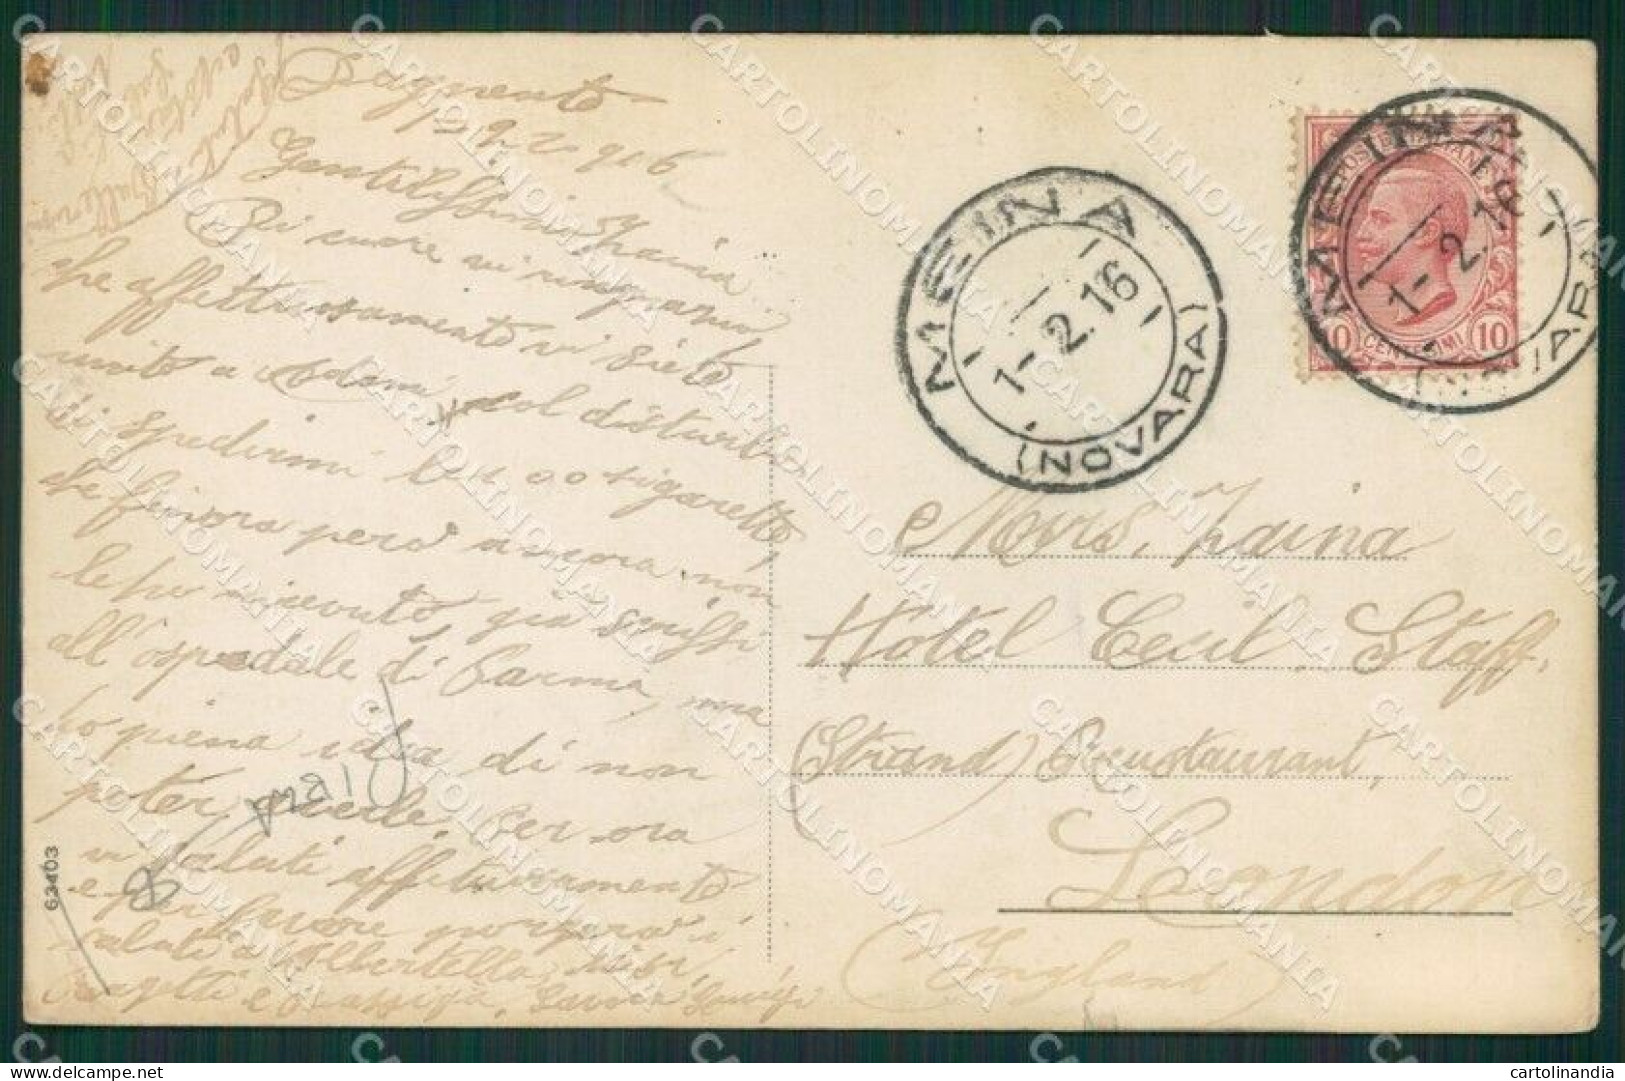 Dagnente
1-2-916
Gentilissimo Zaina
Di cuore vi ringrazio
che affettuosamente vi siete
unito a Adami col disturbo
di spedirmi le 100 sigarette,
che finora però ancora non
le ho ricevuto, già scrissi
all'ospedale di Parma, ma
ho piena idea di non
poter averle. Per ora
vi saluti affettuosamente
e per favore porgerà i
saluti a Albertella, Sisi,
e
MEINA
1-2.16
(NOVARA)
MEINA
1-2.16
(NOVARA)
POSTE ITALIANE
CENTESIMI 10
Mrs. Zaina
Hotel Cecil, Staff.
(Strand) Reustaurant,
Leondon
(England)
63403
mail
CARTOLINOMANIA
cartolinandia